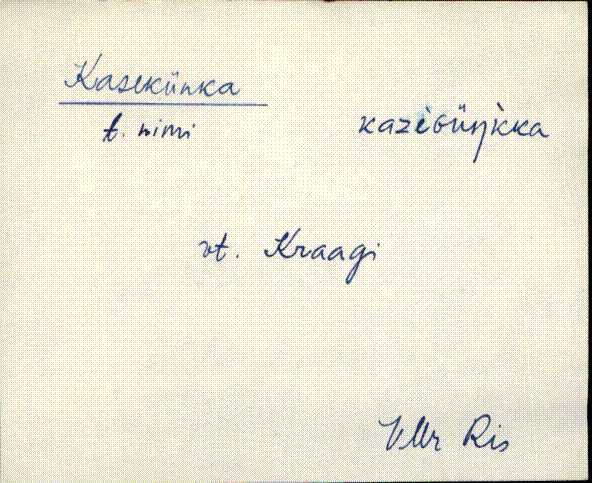 Kasekünka
t. nimi kazeɢüŋ̀kka
vt. Kraagi
VMr Ris